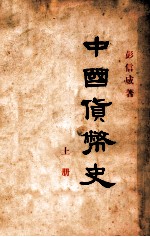 彭信威著
中國貨幣史
上册